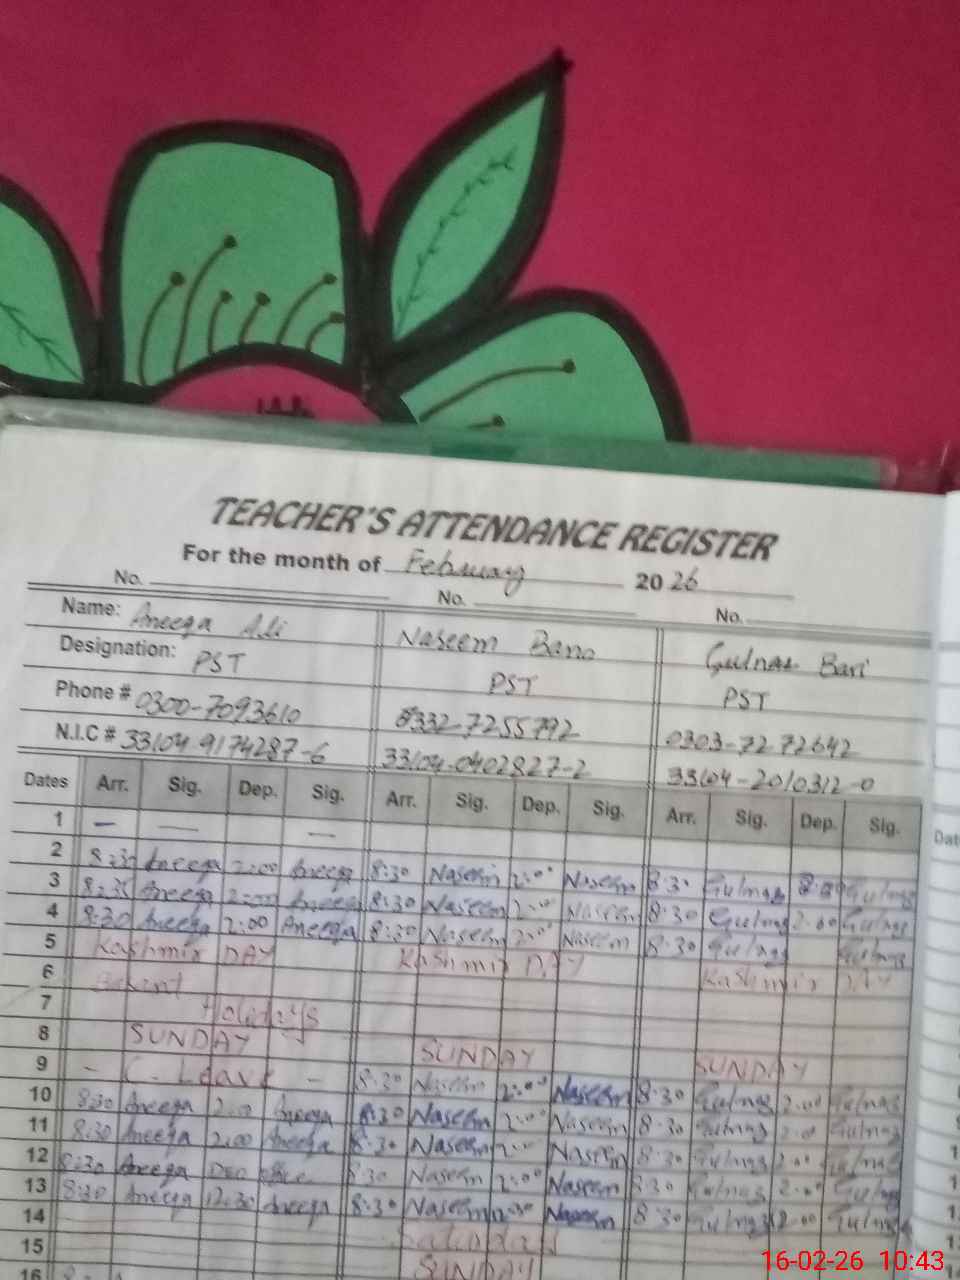 TEACHER'S ATTENDANCE REGISTER
For the month of February 2026
No. No. No.
Name: Aneeqa Ali Naseem Bano Gulnas Bari
Designation: PST PST PST
Phone # 0300-7093610 0332-7255792 0303-7272642
N.I.C # 33104 9174287-6 33104-0402827-2 33104-2010312-0
Dates Arr. Sig. Dep. Sig. Arr. Sig. Dep. Sig. Arr. Sig. Dep. Sig.
1 — — —
2 8:30 Aneeqa 2:00 Aneeqa 8:30 Naseem 2:00 Naseem 8:30 Gulnas Gulnas
3 Aneeqa 2:00 Aneeqa 8:30 Naseem 2:00 Naseem 8:30 Gulnas 2:00 Gulnas
4 8:30 Aneeqa 2:00 Aneeqa 8:30 Naseem 2:00 Naseem 8:30 Gulnas Gulnas
5 Kashmir DAY Kashmir DAY Kashmir DAY
6
7 Holidays
8 SUNDAY SUNDAY SUNDAY
9 - C. Leave - 8:30 Naseem 2:00 Naseem 8:30 Gulnas 2:00 Gulnas
10 8:30 Aneeqa 2:00 Aneeqa 8:30 Naseem 2:00 Naseem 8:30 Gulnas 2:00 Gulnas
11 8:30 Aneeqa 2:00 Aneeqa 8:30 Naseem 2:00 Naseem 8:30 Gulnas 2:00 Gulnas
12 8:30 Aneeqa 8:30 Naseem 2:00 Naseem 8:30 Gulnas 2:00 Gulnas
13 8:30 Aneeqa 12:30 Aneeqa 8:30 Naseem Naseem 8:30 Gulnas 12:00 Gulnas
14
15 SUNDAY
16
16-02-26 10:43